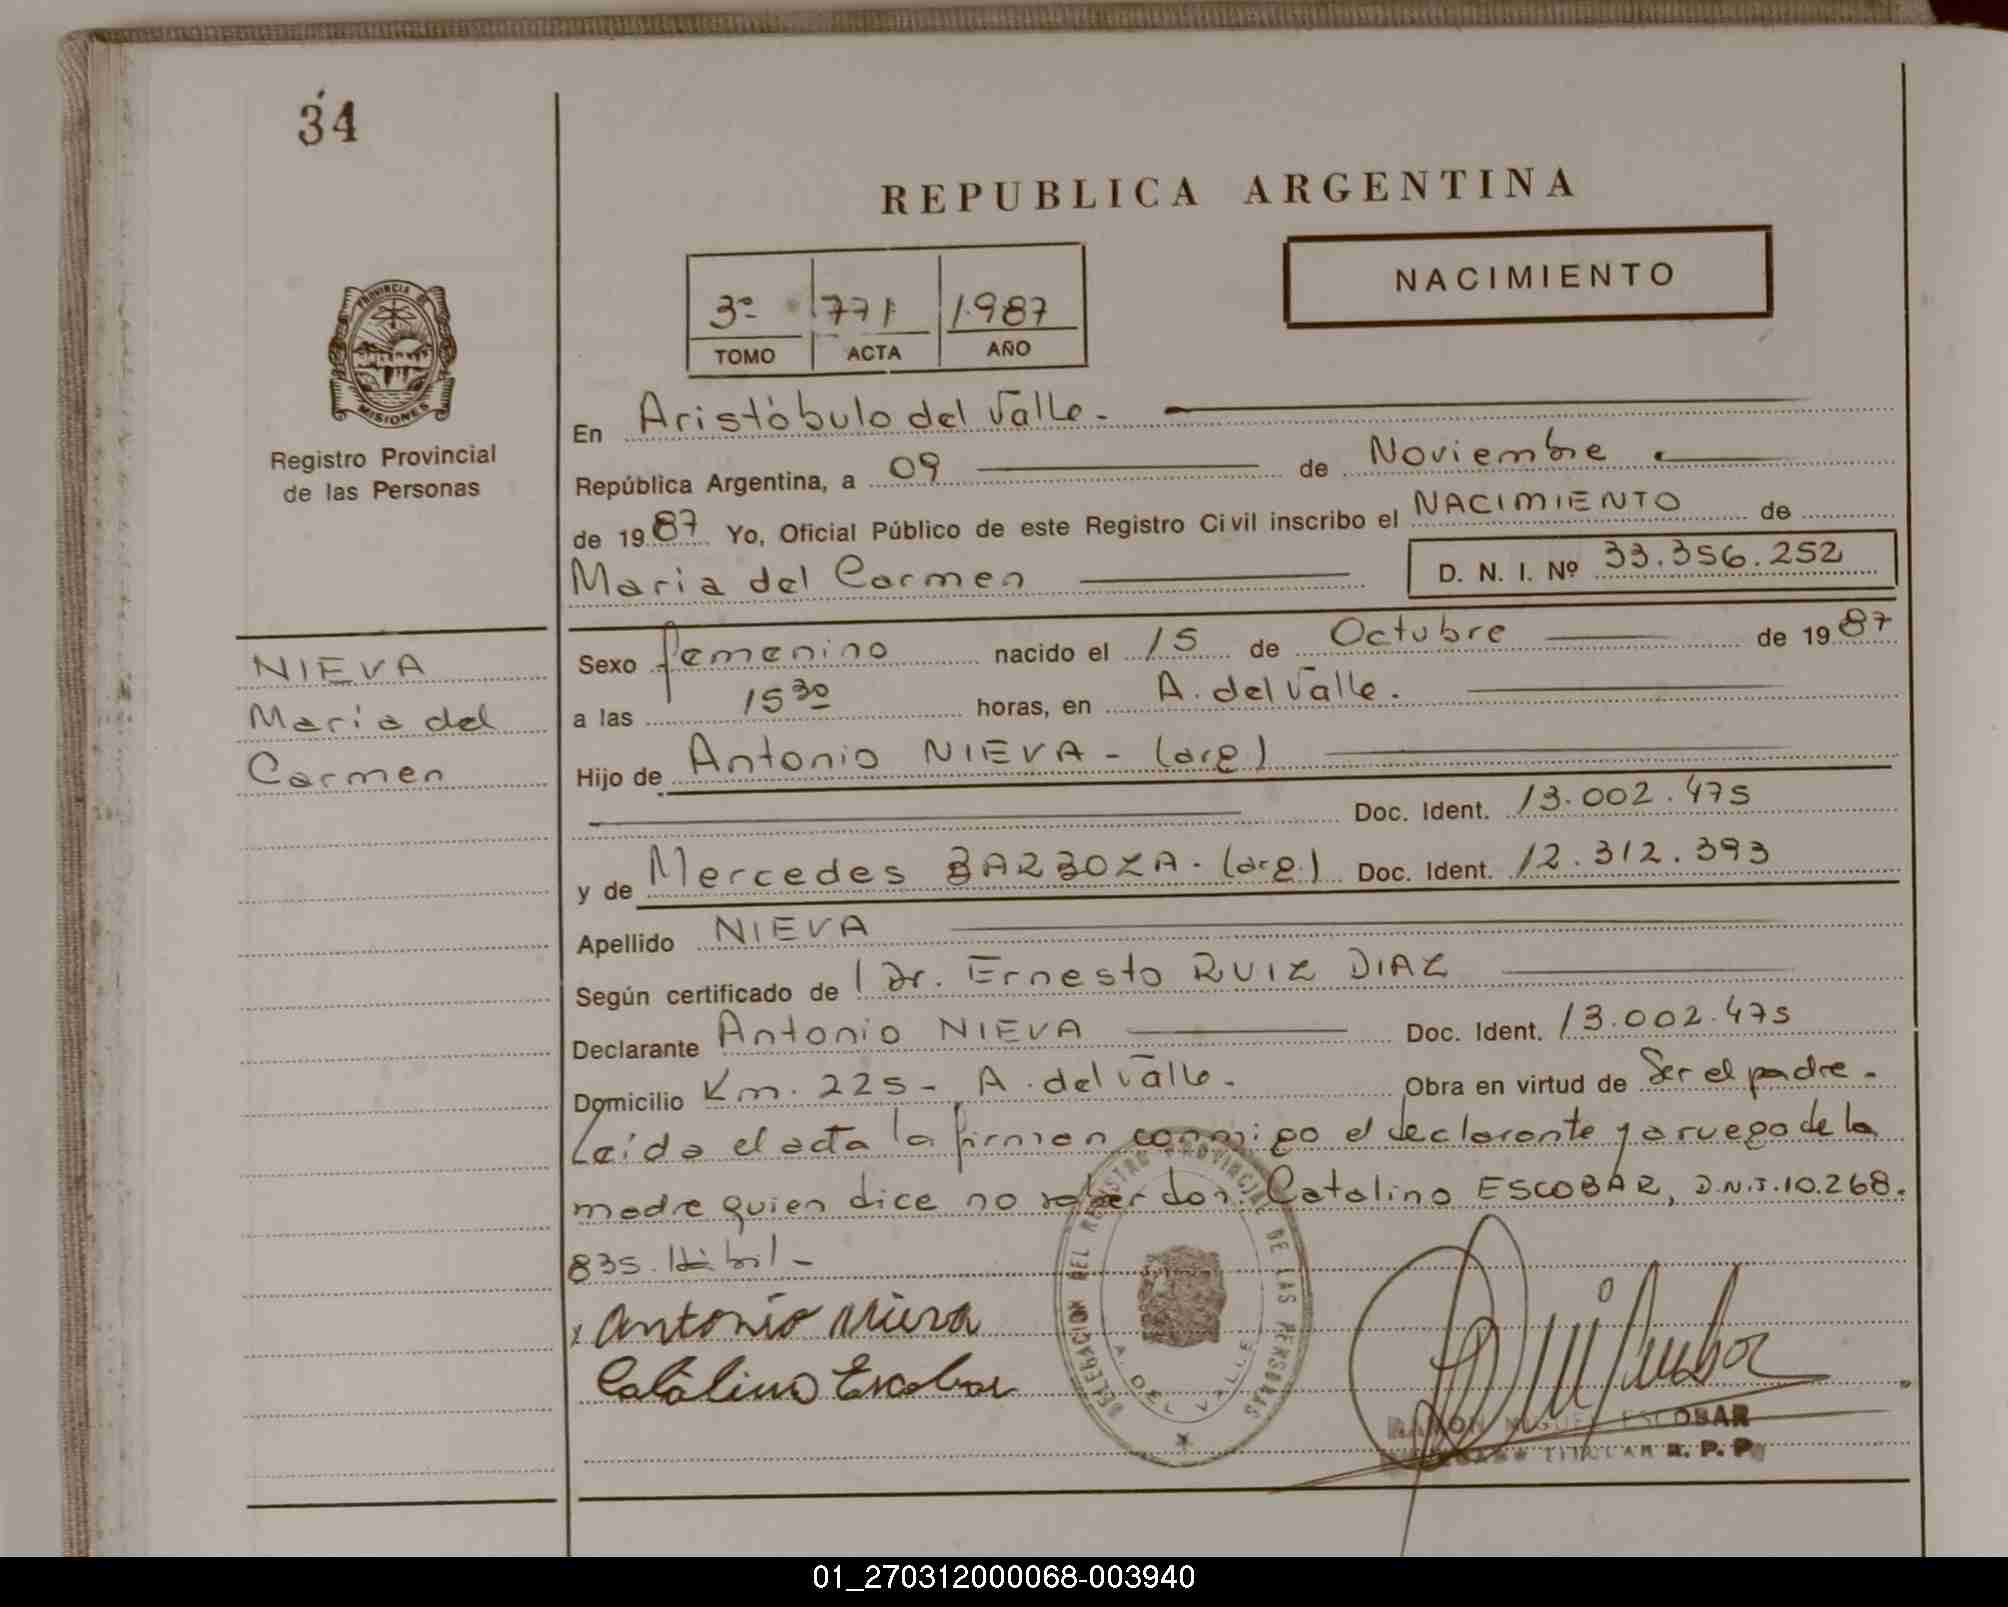 34
REPUBLICA ARGENTINA
NACIMIENTO
3º 771 1.987
TOMO ACTA AÑO
PROVINCIA DE
MISIONES
Registro Provincial
de las Personas
NIEVA
Maria del
Carmen
En Aristóbulo del Valle.-
República Argentina, a 09 de Noviembre
de 1987 Yo, Oficial Público de este Registro Civil inscribo el NACIMIENTO de
Maria del Carmen D. N. I. Nº 33.356.252
Sexo femenino nacido el 15 de Octubre de 1987
a las 15 30 horas, en A. del Valle.
Hijo de Antonio NIEVA - (arg)
Doc. Ident. 13.002.475
y de Mercedes BARBOZA. (arg.) Doc. Ident. 12.312.393
Apellido NIEVA
Según certificado de Dr. Ernesto RUIZ DIAZ
Declarante Antonio NIEVA Doc. Ident. 13.002.475
Domicilio Km. 225 - A. del Valle. Obra en virtud de Ser el padre.
Leída el acta la firman conmigo el declarante y a ruego de la
madre quien dice no saber don: Catalino ESCOBAR, D.N.I. 10.268.
835. Hábil -
Antonio Nieva
Catalino Escobar
DELEGACION DEL REGISTRO PROVINCIAL DE LAS PERSONAS
A. DEL VALLE
RAMON MIGUEL ESCOBAR
TITULAR R. P. P.
01_270312000068-003940